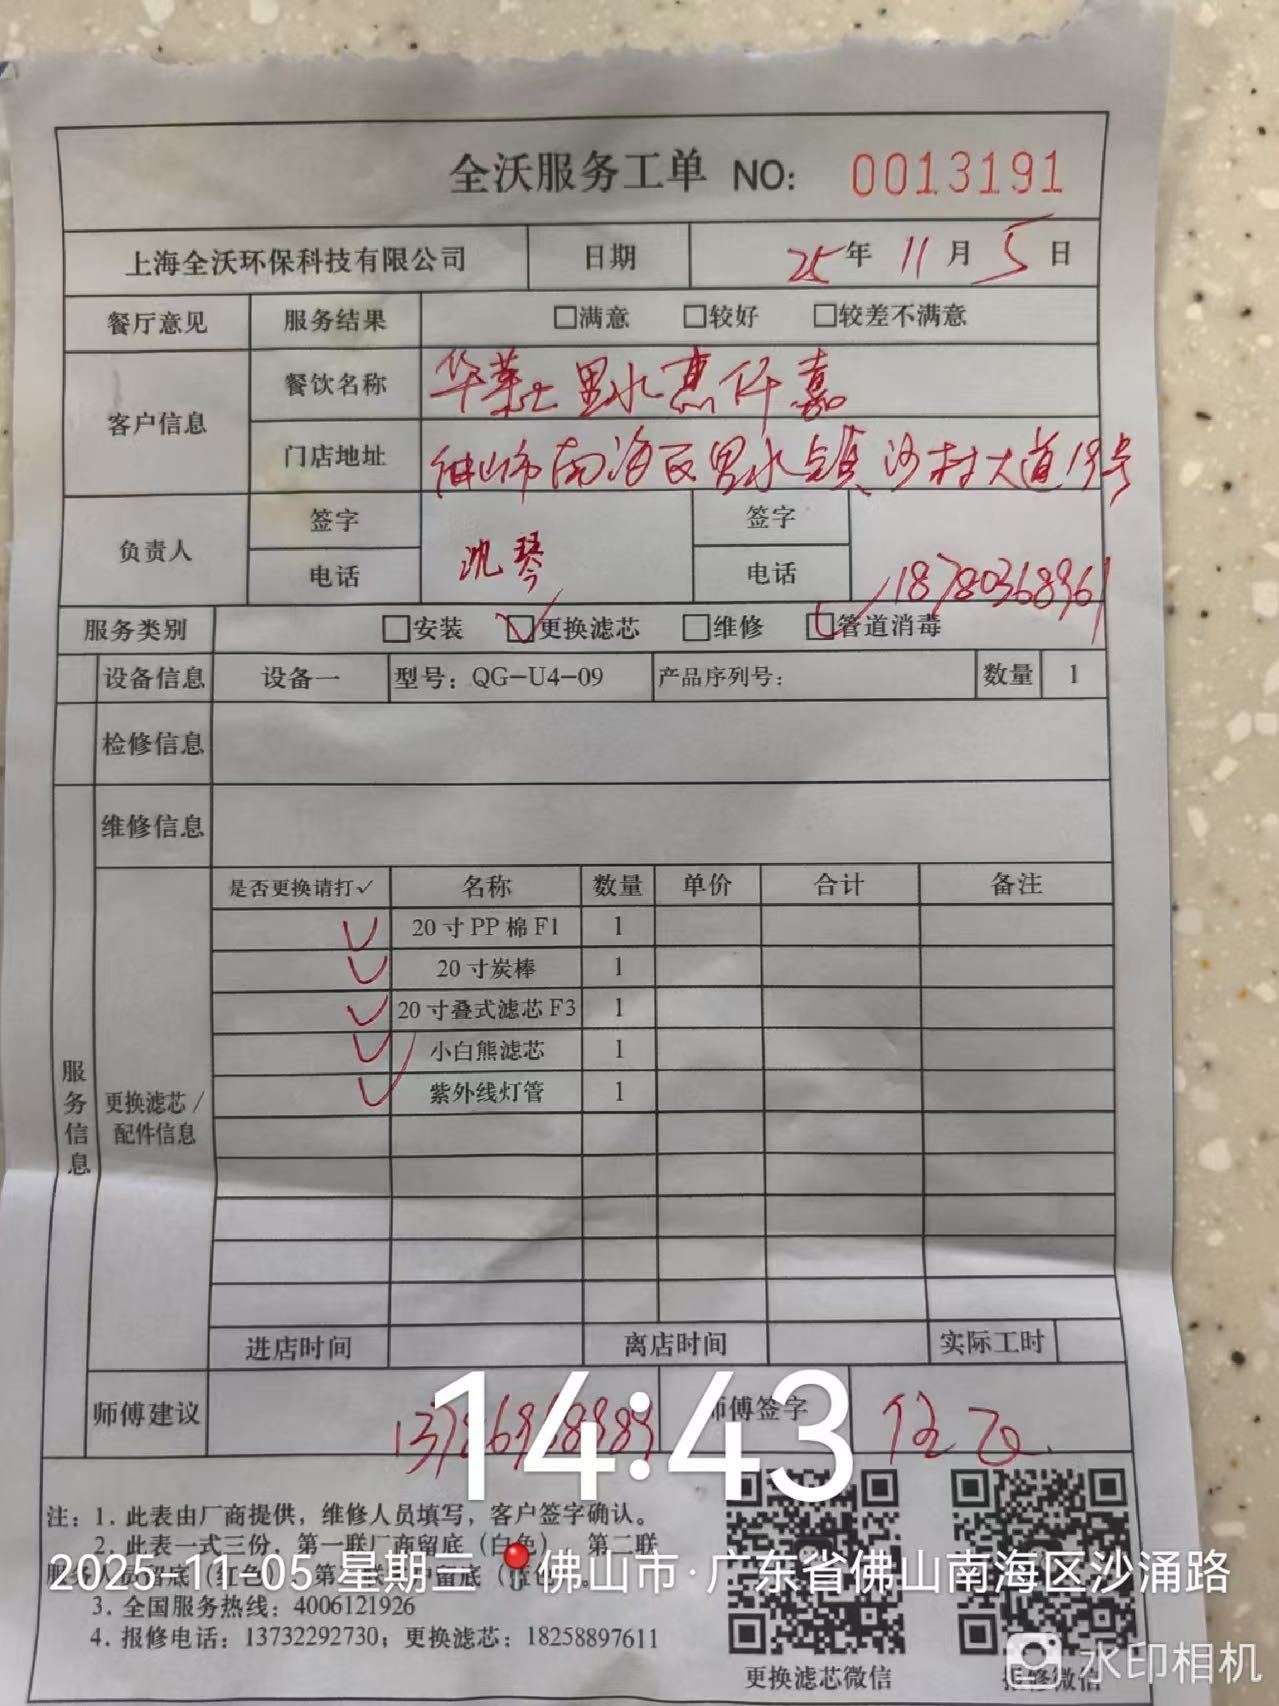 全沃服务工单 NO: 0013191
上海全沃环保科技有限公司 日期 25年 11月 5日
餐厅意见 服务结果 □满意 □较好 □较差不满意
客户信息 餐饮名称 华莱士里水惠仟嘉
门店地址 佛山市南海区里水镇沙村大道19号
负责人 签字 签字
电话 琴 电话 18780368961
服务类别 □安装 ☑更换滤芯 □维修 ☑管道消毒
设备信息 设备一 型号：QG-U4-09 产品序列号： 数量 1
检修信息
维修信息
服务信息
更换滤芯/
配件信息
是否更换请打✓ 名称 数量 单价 合计 备注
✓ 20寸PP棉F1 1
✓ 20寸炭棒 1
✓ 20寸叠式滤芯F3 1
✓ 小白熊滤芯 1
✓ 紫外线灯管 1
进店时间 离店时间 实际工时
师傅建议 师傅签字
14:43
注：1. 此表由厂商提供，维修人员填写，客户签字确认。
2. 此表一式三份，第一联厂商留底（白色），第二联
2025-11-05 星期三 佛山市·广东省佛山南海区沙涌路
3. 全国服务热线：4006121926
4. 报修电话：13732292730；更换滤芯：18258897611
更换滤芯微信 报修微信
水印相机